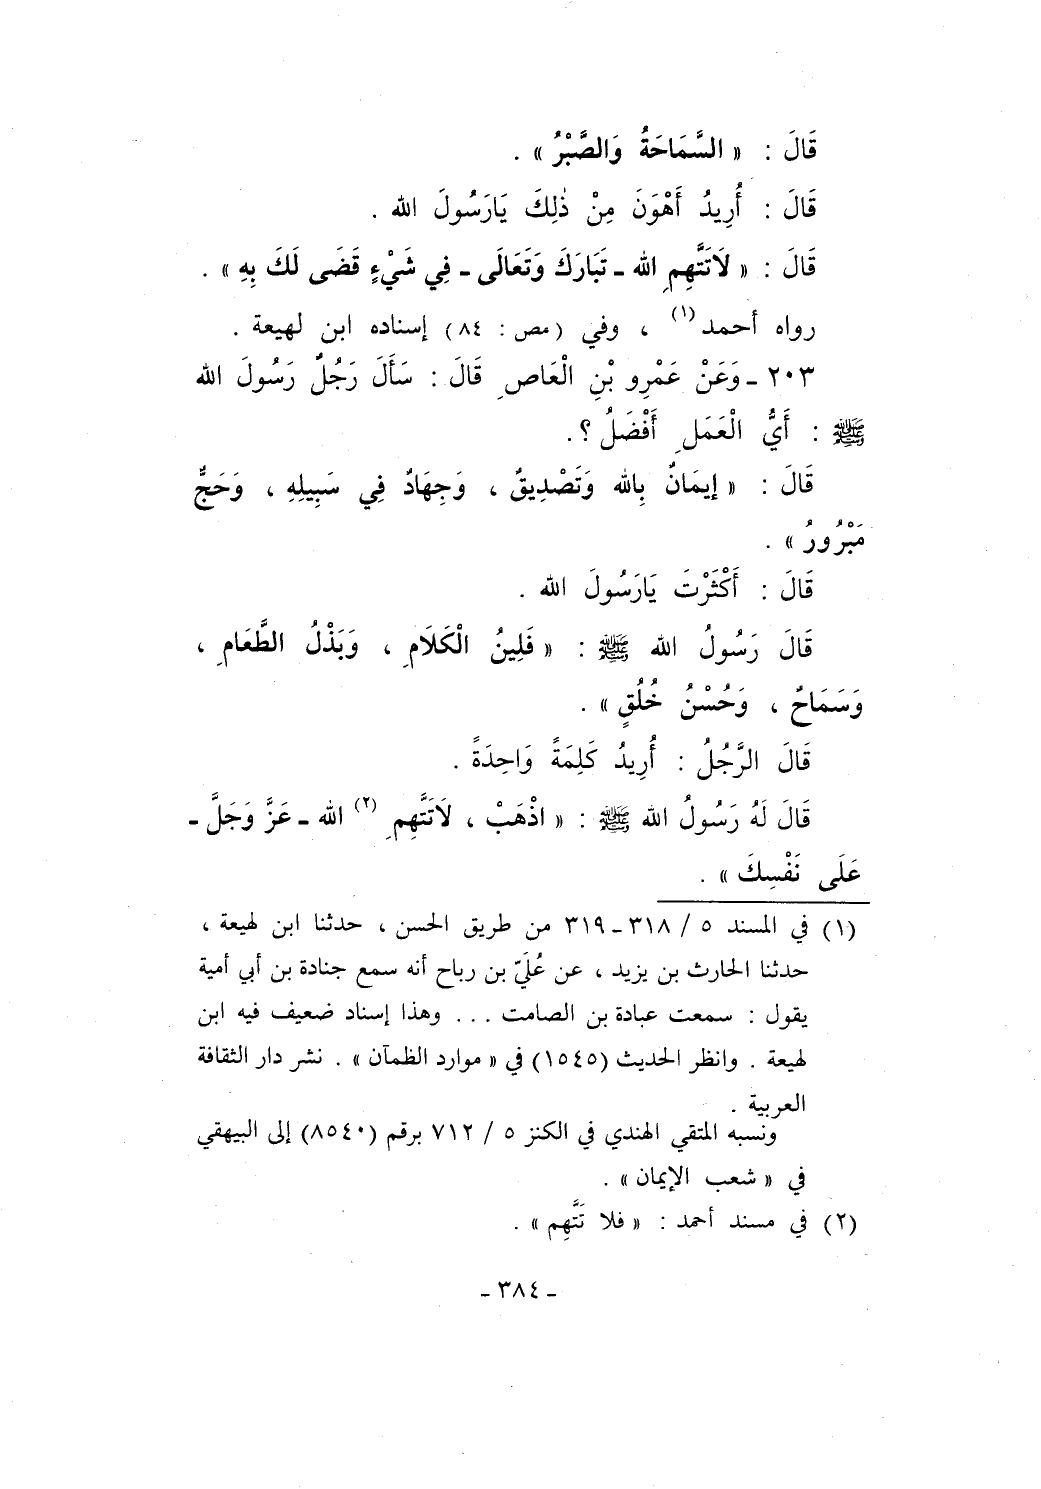 قَالَ : « السَّمَاحَةُ وَالصَّبْرُ » .
قَالَ : أُرِيدُ أَهْوَنَ مِنْ ذٰلِكَ يَارَسُولَ الله .
قَالَ : « لَاتَتَّهِمِ الله ـ تَبَارَكَ وَتَعَالَى ـ فِي شَيْءٍ قَضَى لَكَ بِهِ » .
رواه أحمد (١) ، وفي (مص : ٨٤) إسناده ابن لهيعة .
٢٠٣ ـ وَعَنْ عَمْرِو بْنِ الْعَاصِ قَالَ : سَأَلَ رَجُلٌ رَسُولَ الله
ﷺ : أَيُّ الْعَمَلِ أَفْضَلُ ؟ .
قَالَ : « إِيمَانٌ بِالله وَتَصْدِيقٌ ، وَجِهَادٌ فِي سَبِيلِهِ ، وَحَجٌّ
مَبْرُورٌ » .
قَالَ : أَكْثَرْتَ يَارَسُولَ الله .
قَالَ رَسُولُ الله ﷺ : « فَلِينُ الْكَلَامِ ، وَبَذْلُ الطَّعَامِ ،
وَسَمَاحٌ ، وَحُسْنُ خُلُقٍ » .
قَالَ الرَّجُلُ : أُرِيدُ كَلِمَةً وَاحِدَةً .
قَالَ لَهُ رَسُولُ الله ﷺ : « اذْهَبْ ، لَاتَتَّهِمِ (٢) الله ـ عَزَّ وَجَلَّ ـ
عَلَى نَفْسِكَ » .
(١) في المسند ٥ / ٣١٨ ـ ٣١٩ من طريق الحسن ، حدثنا ابن لهيعة ،
حدثنا الحارث بن يزيد ، عن عُلَيّ بن رباح أنه سمع جنادة بن أبي أمية
يقول : سمعت عبادة بن الصامت ... وهذا إسناد ضعيف فيه ابن
لهيعة . وانظر الحديث (١٥٤٥) في « موارد الظمآن » . نشر دار الثقافة
العربية .
ونسبه المتقي الهندي في الكنز ٥ / ٧١٢ برقم (٨٥٤٠) إلى البيهقي
في « شعب الإيمان » .
(٢) في مسند أحمد : « فلا تَتَّهِم » .
ـ ٣٨٤ ـ